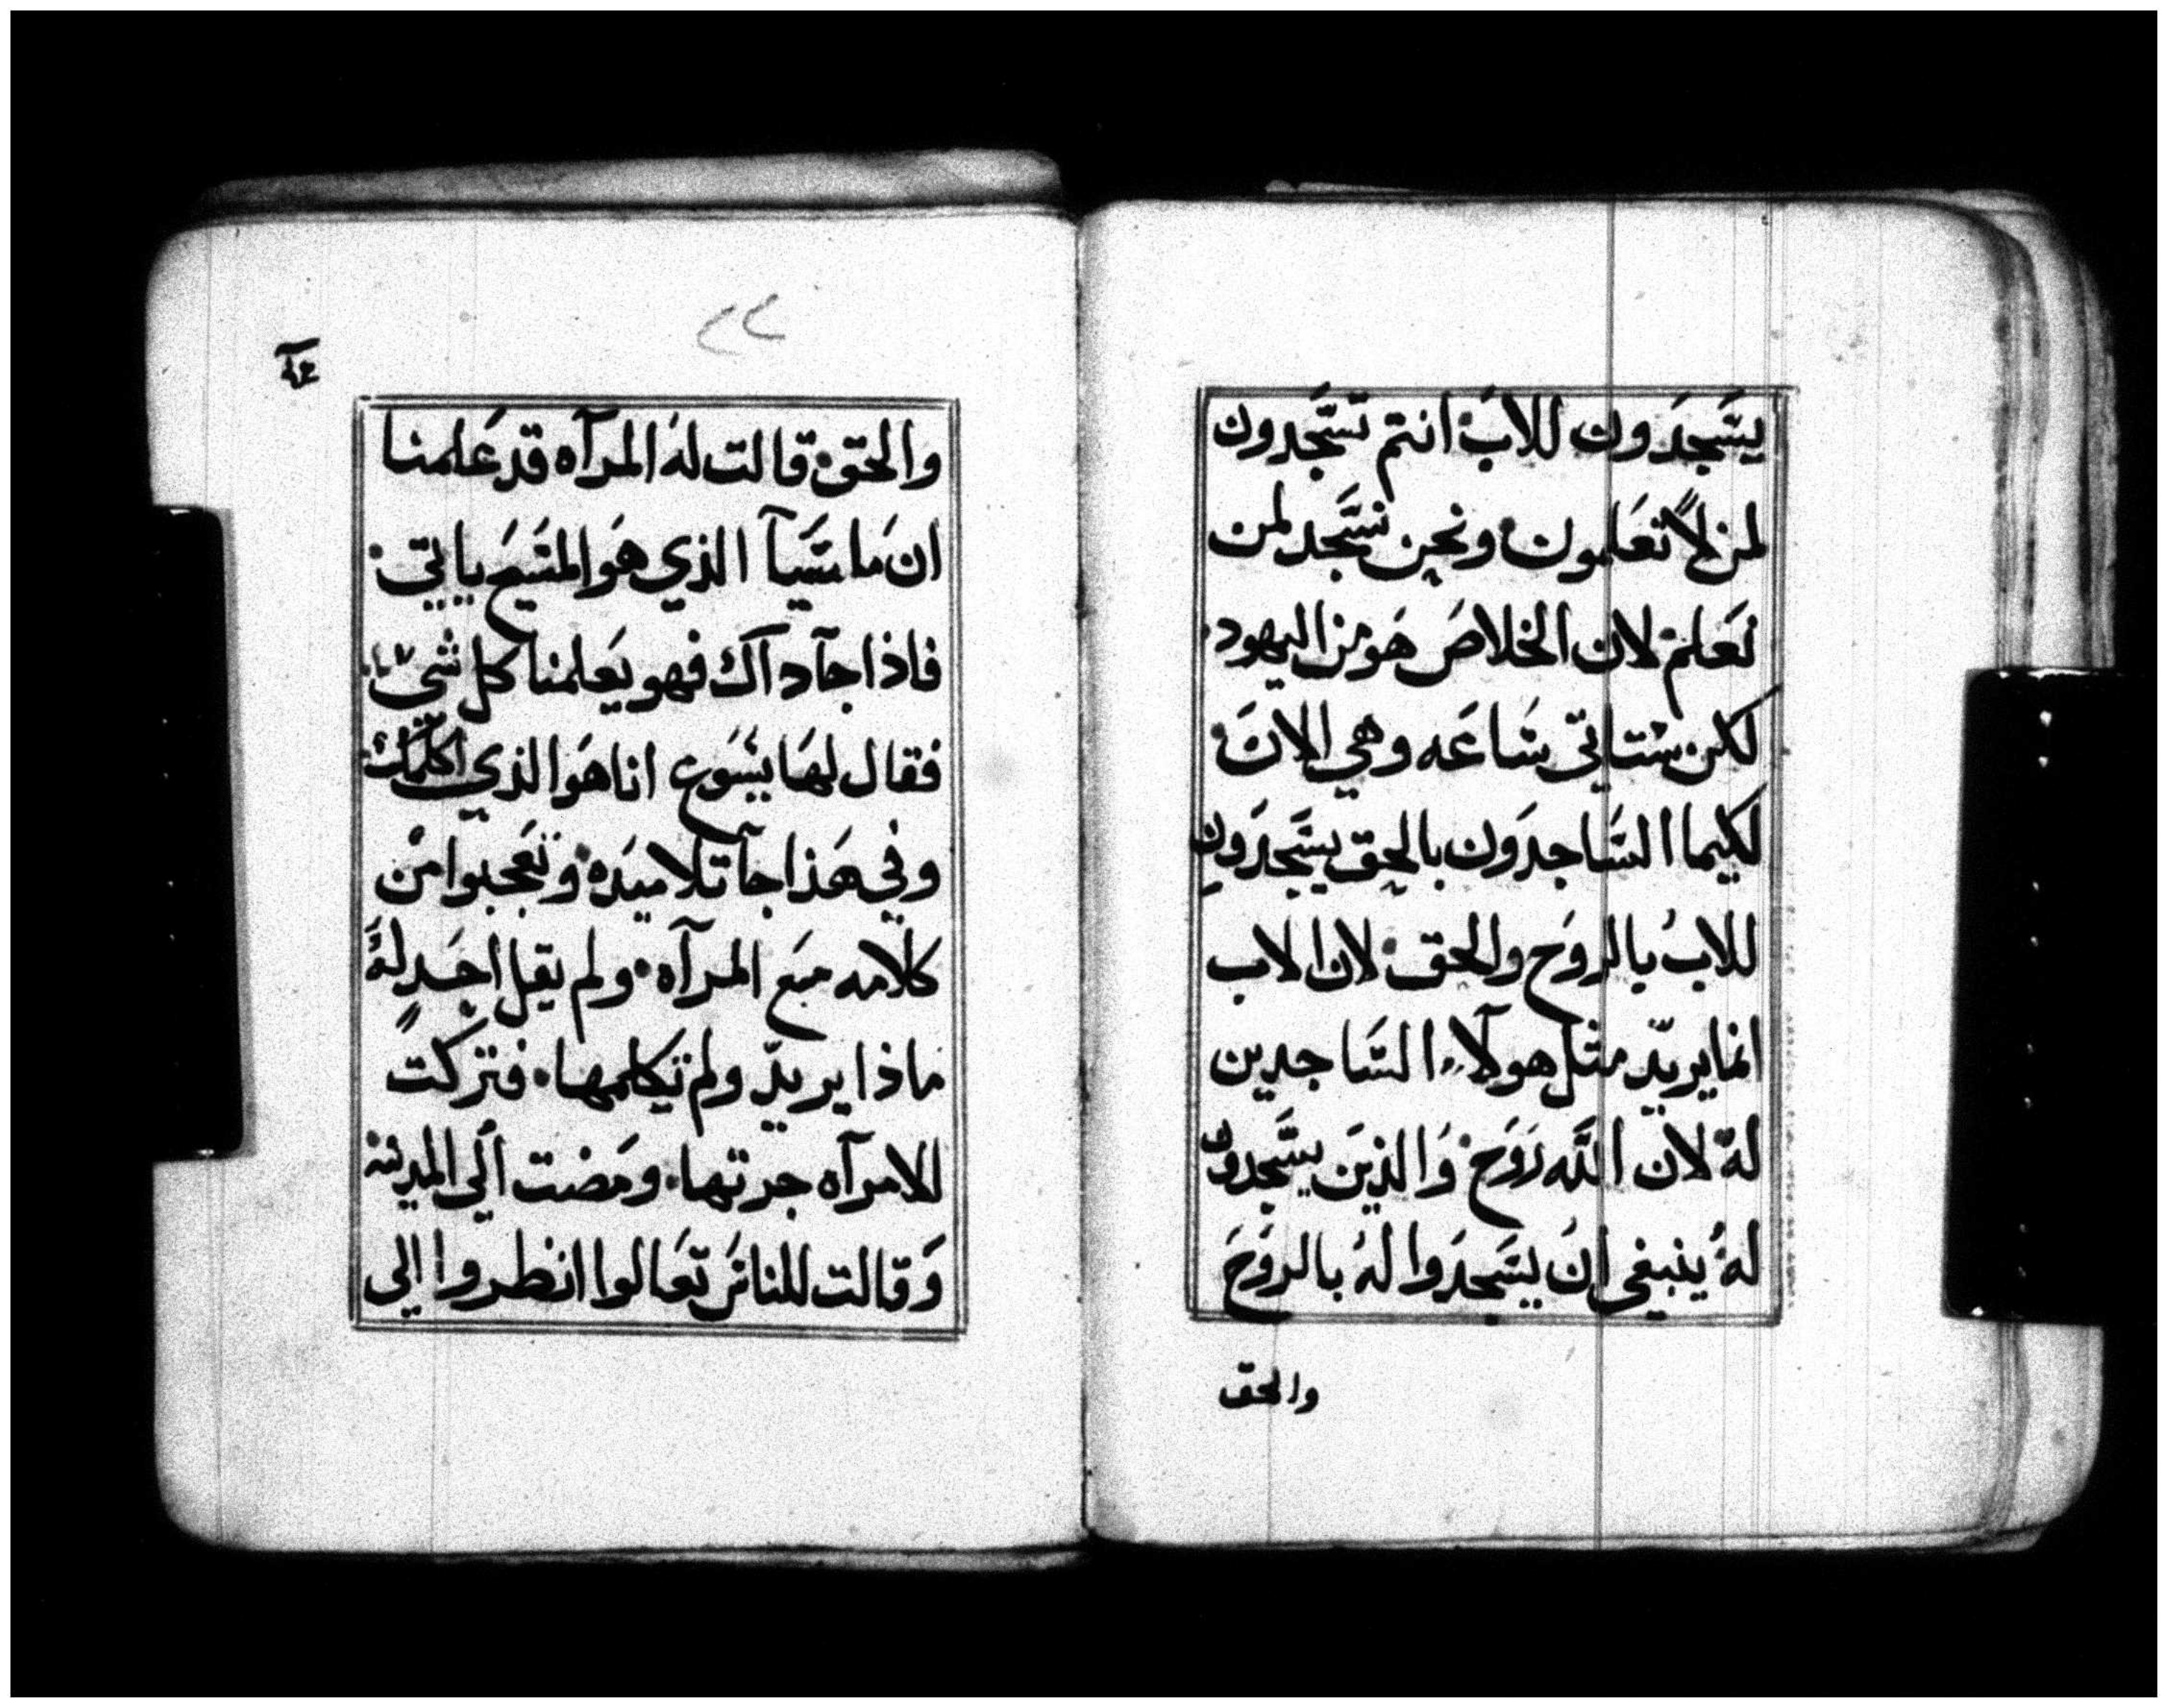 يسَجدَون للابَ انتم تسَجدون
لمن لا تعَلمون ونحن نسَجد لمن
نعَلم لان الخلاصَ هَو من اليهود
لكن ستاتي سَاعَه وهي الانَ
لكيما السَاجدَون بالحق يسَجدَون
للابُ بالروَح والحق لان الاب
انما يريدّ مثل هولآء السَاجدين
لهُ لان اللَه رَوَح وَالذينَ يسَجدون
لهُ ينبغي انُ يسَجدَوا لهُ بالروَحَ
والحق
٢٢
والحق قالت لهُ المرآه قد عَلمنا
ان مَا سَيآ الذي هَو المسَيح ياتي
فاذا جآ دآك فهو يعَلمنا كل شيء
فقال لهَا يسَوع انا هَو الذي اكلمك
وفي هَذا جآ تلاميَدهُ وتعَجبوا من
كلامه مَع المرآه ولم يقل احَد لهُ
ماذا يريدّ ولم تكلمها فتركت
الامرآه جرتها ومَضت آلي المدينه
وَقالت للناسَ تعَالوا انظروا الي